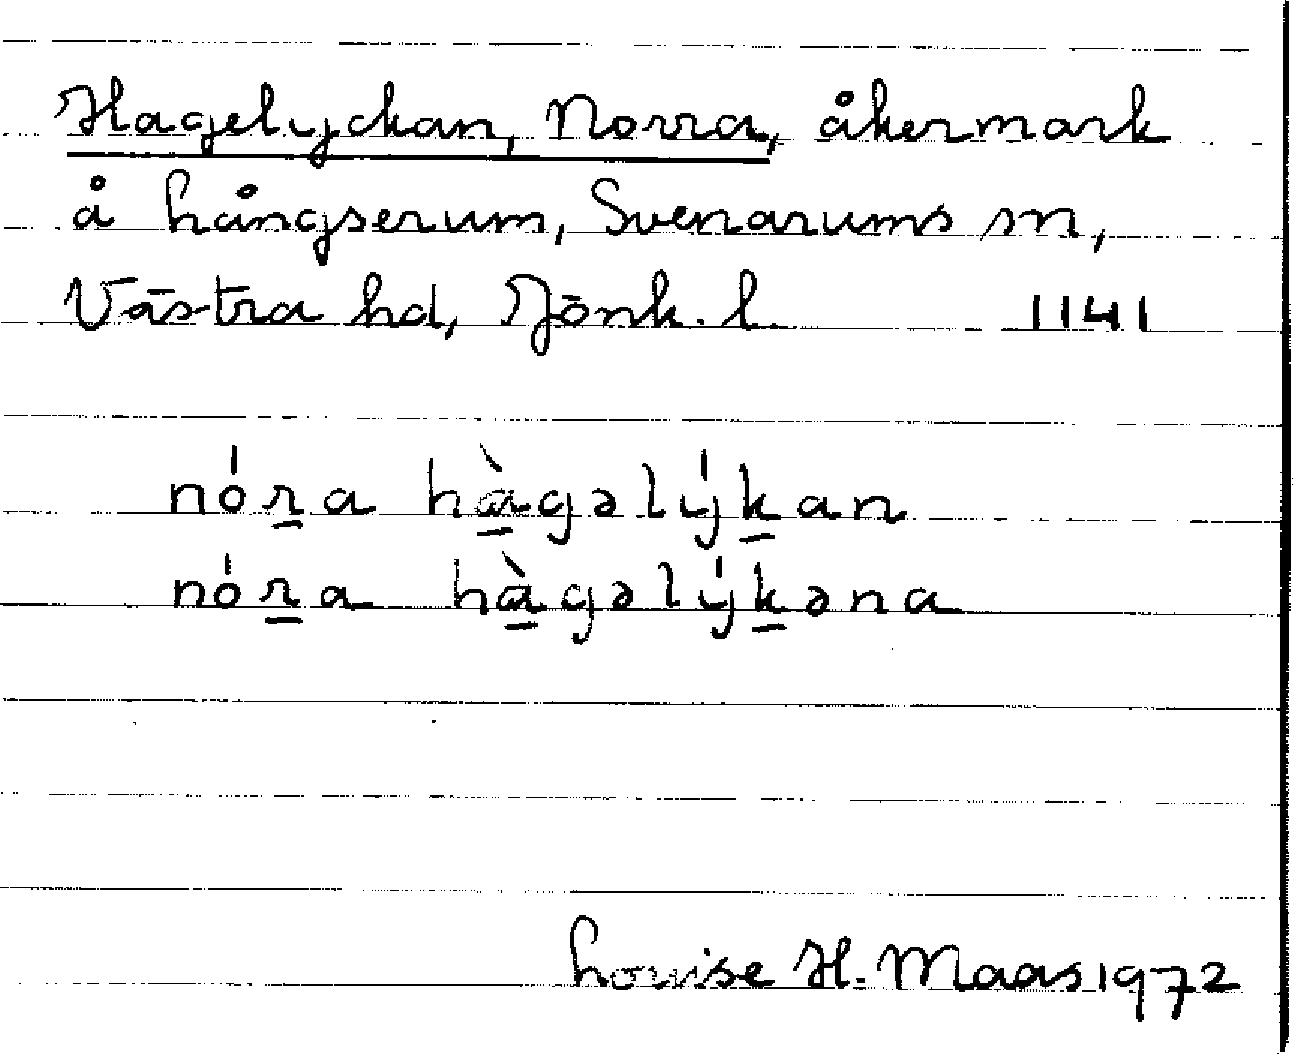 Hagelyckan, Norra, åkermark
å Långserum, Svenarums sn,
Västra hd, Jönk. l. 1141
nór̲a hà̲gəlýk̲an
nór̲a hà̲gəlýk̲əna
Louise H. Maas 1972